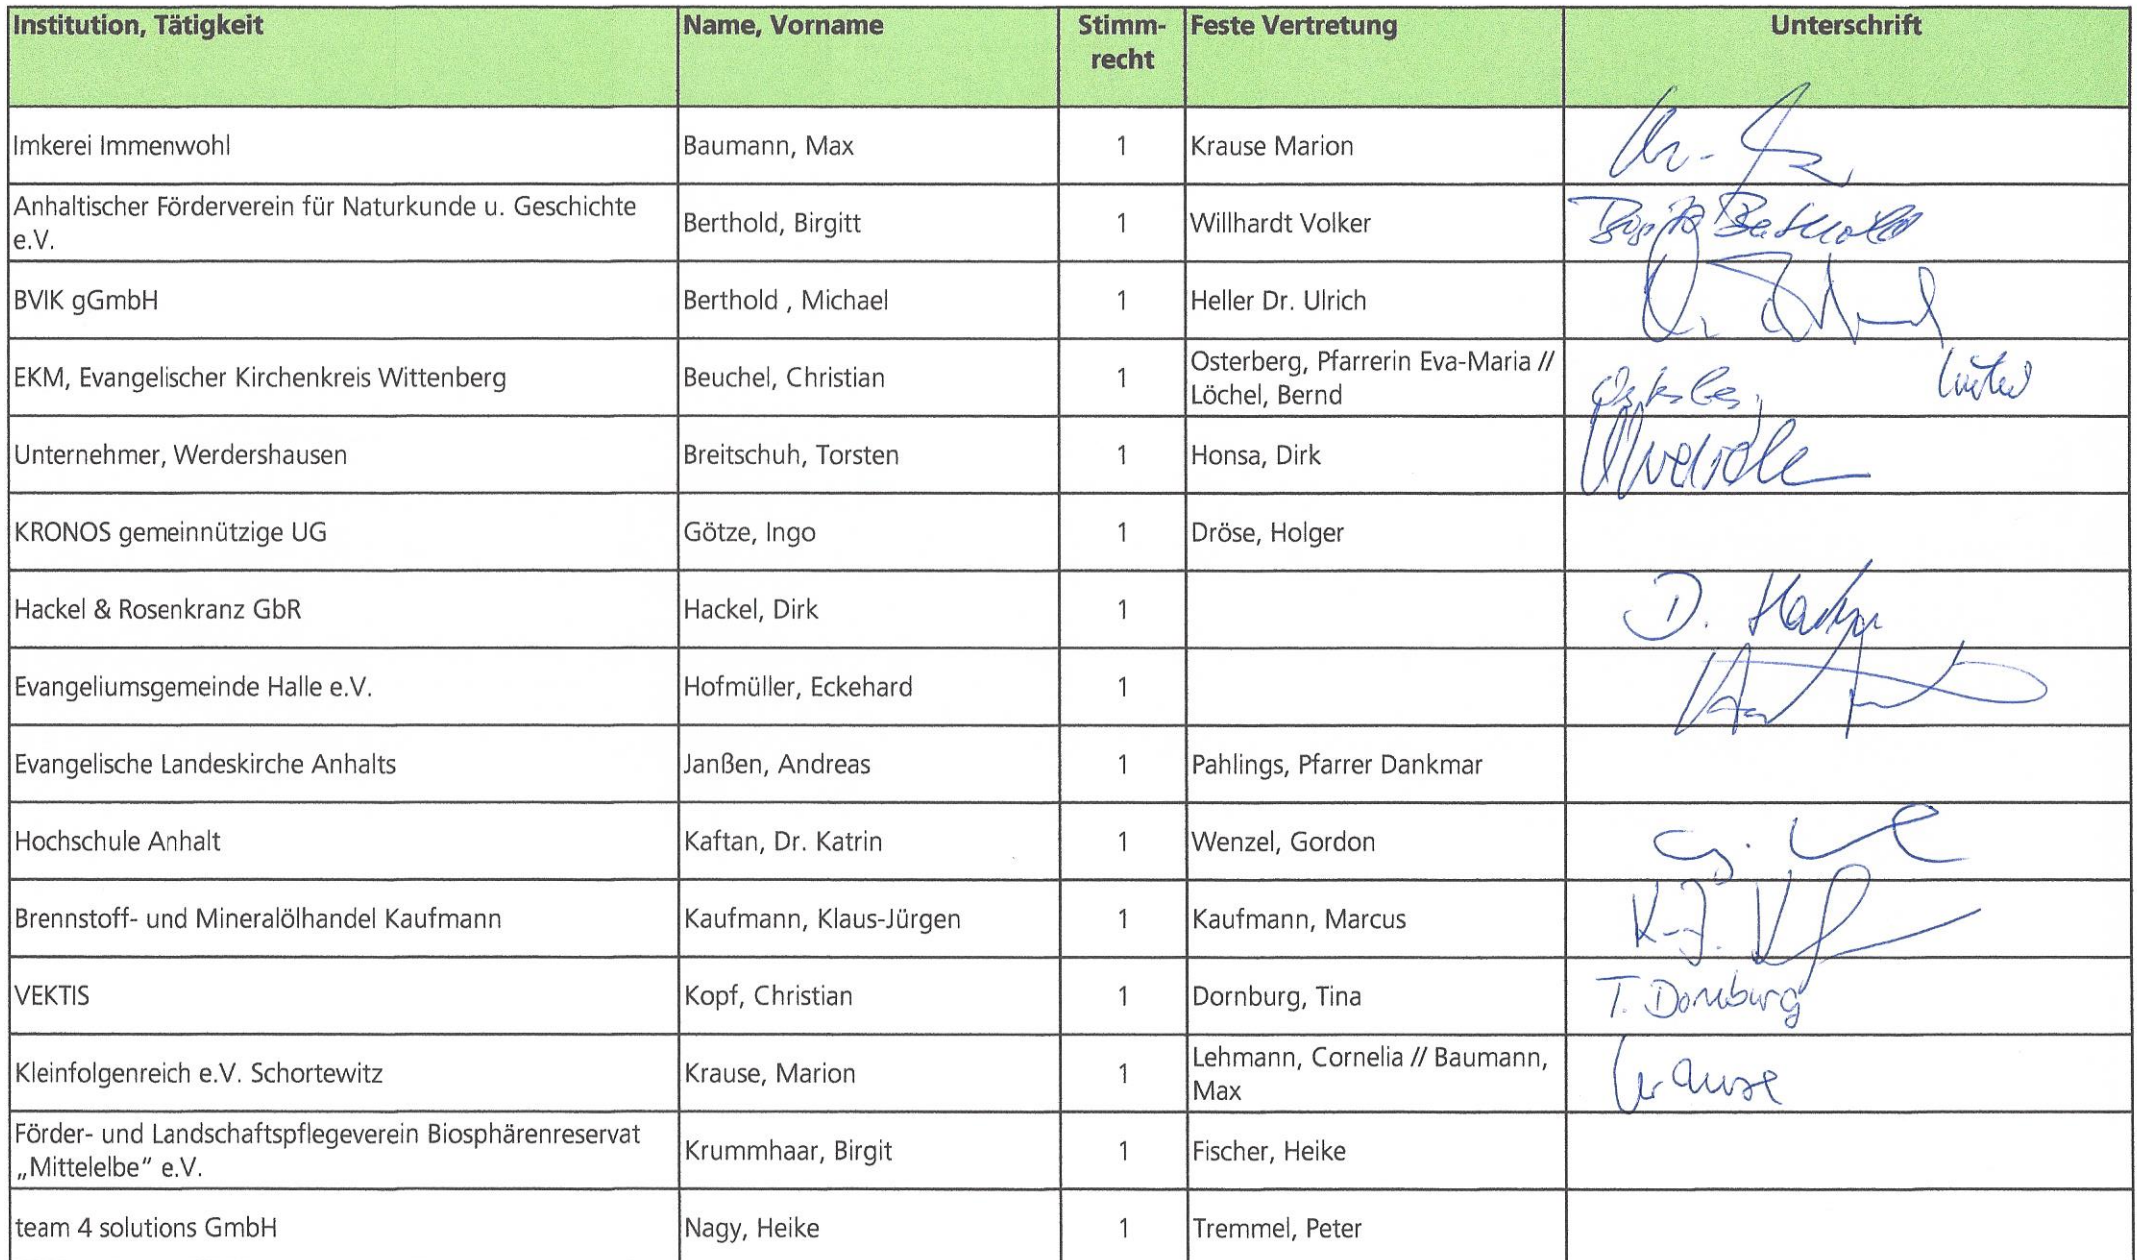 Institution, Tätigkeit Name, Vorname Stimm- Feste Vertretung Unterschrift
recht
Imkerei Immenwohl Baumann, Max 1 Krause Marion
Anhaltischer Förderverein für Naturkunde u. Geschichte
e.V. Berthold, Birgitt 1 Willhardt Volker Birgitt Berthold
BVIK gGmbH Berthold , Michael 1 Heller Dr. Ulrich
EKM, Evangelischer Kirchenkreis Wittenberg Beuchel, Christian 1 Osterberg, Pfarrerin Eva-Maria //
Löchel, Bernd
Unternehmer, Werdershausen Breitschuh, Torsten 1 Honsa, Dirk
KRONOS gemeinnützige UG Götze, Ingo 1 Dröse, Holger
Hackel & Rosenkranz GbR Hackel, Dirk 1 D.
Evangeliumsgemeinde Halle e.V. Hofmüller, Eckehard 1
Evangelische Landeskirche Anhalts Janßen, Andreas 1 Pahlings, Pfarrer Dankmar
Hochschule Anhalt Kaftan, Dr. Katrin 1 Wenzel, Gordon
Brennstoff- und Mineralölhandel Kaufmann Kaufmann, Klaus-Jürgen 1 Kaufmann, Marcus K-J.
VEKTIS Kopf, Christian 1 Dornburg, Tina T. Dornburg
Kleinfolgenreich e.V. Schortewitz Krause, Marion 1 Lehmann, Cornelia // Baumann,
Max Krause
Förder- und Landschaftspflegeverein Biosphärenreservat
„Mittelelbe" e.V. Krummhaar, Birgit 1 Fischer, Heike
team 4 solutions GmbH Nagy, Heike 1 Tremmel, Peter